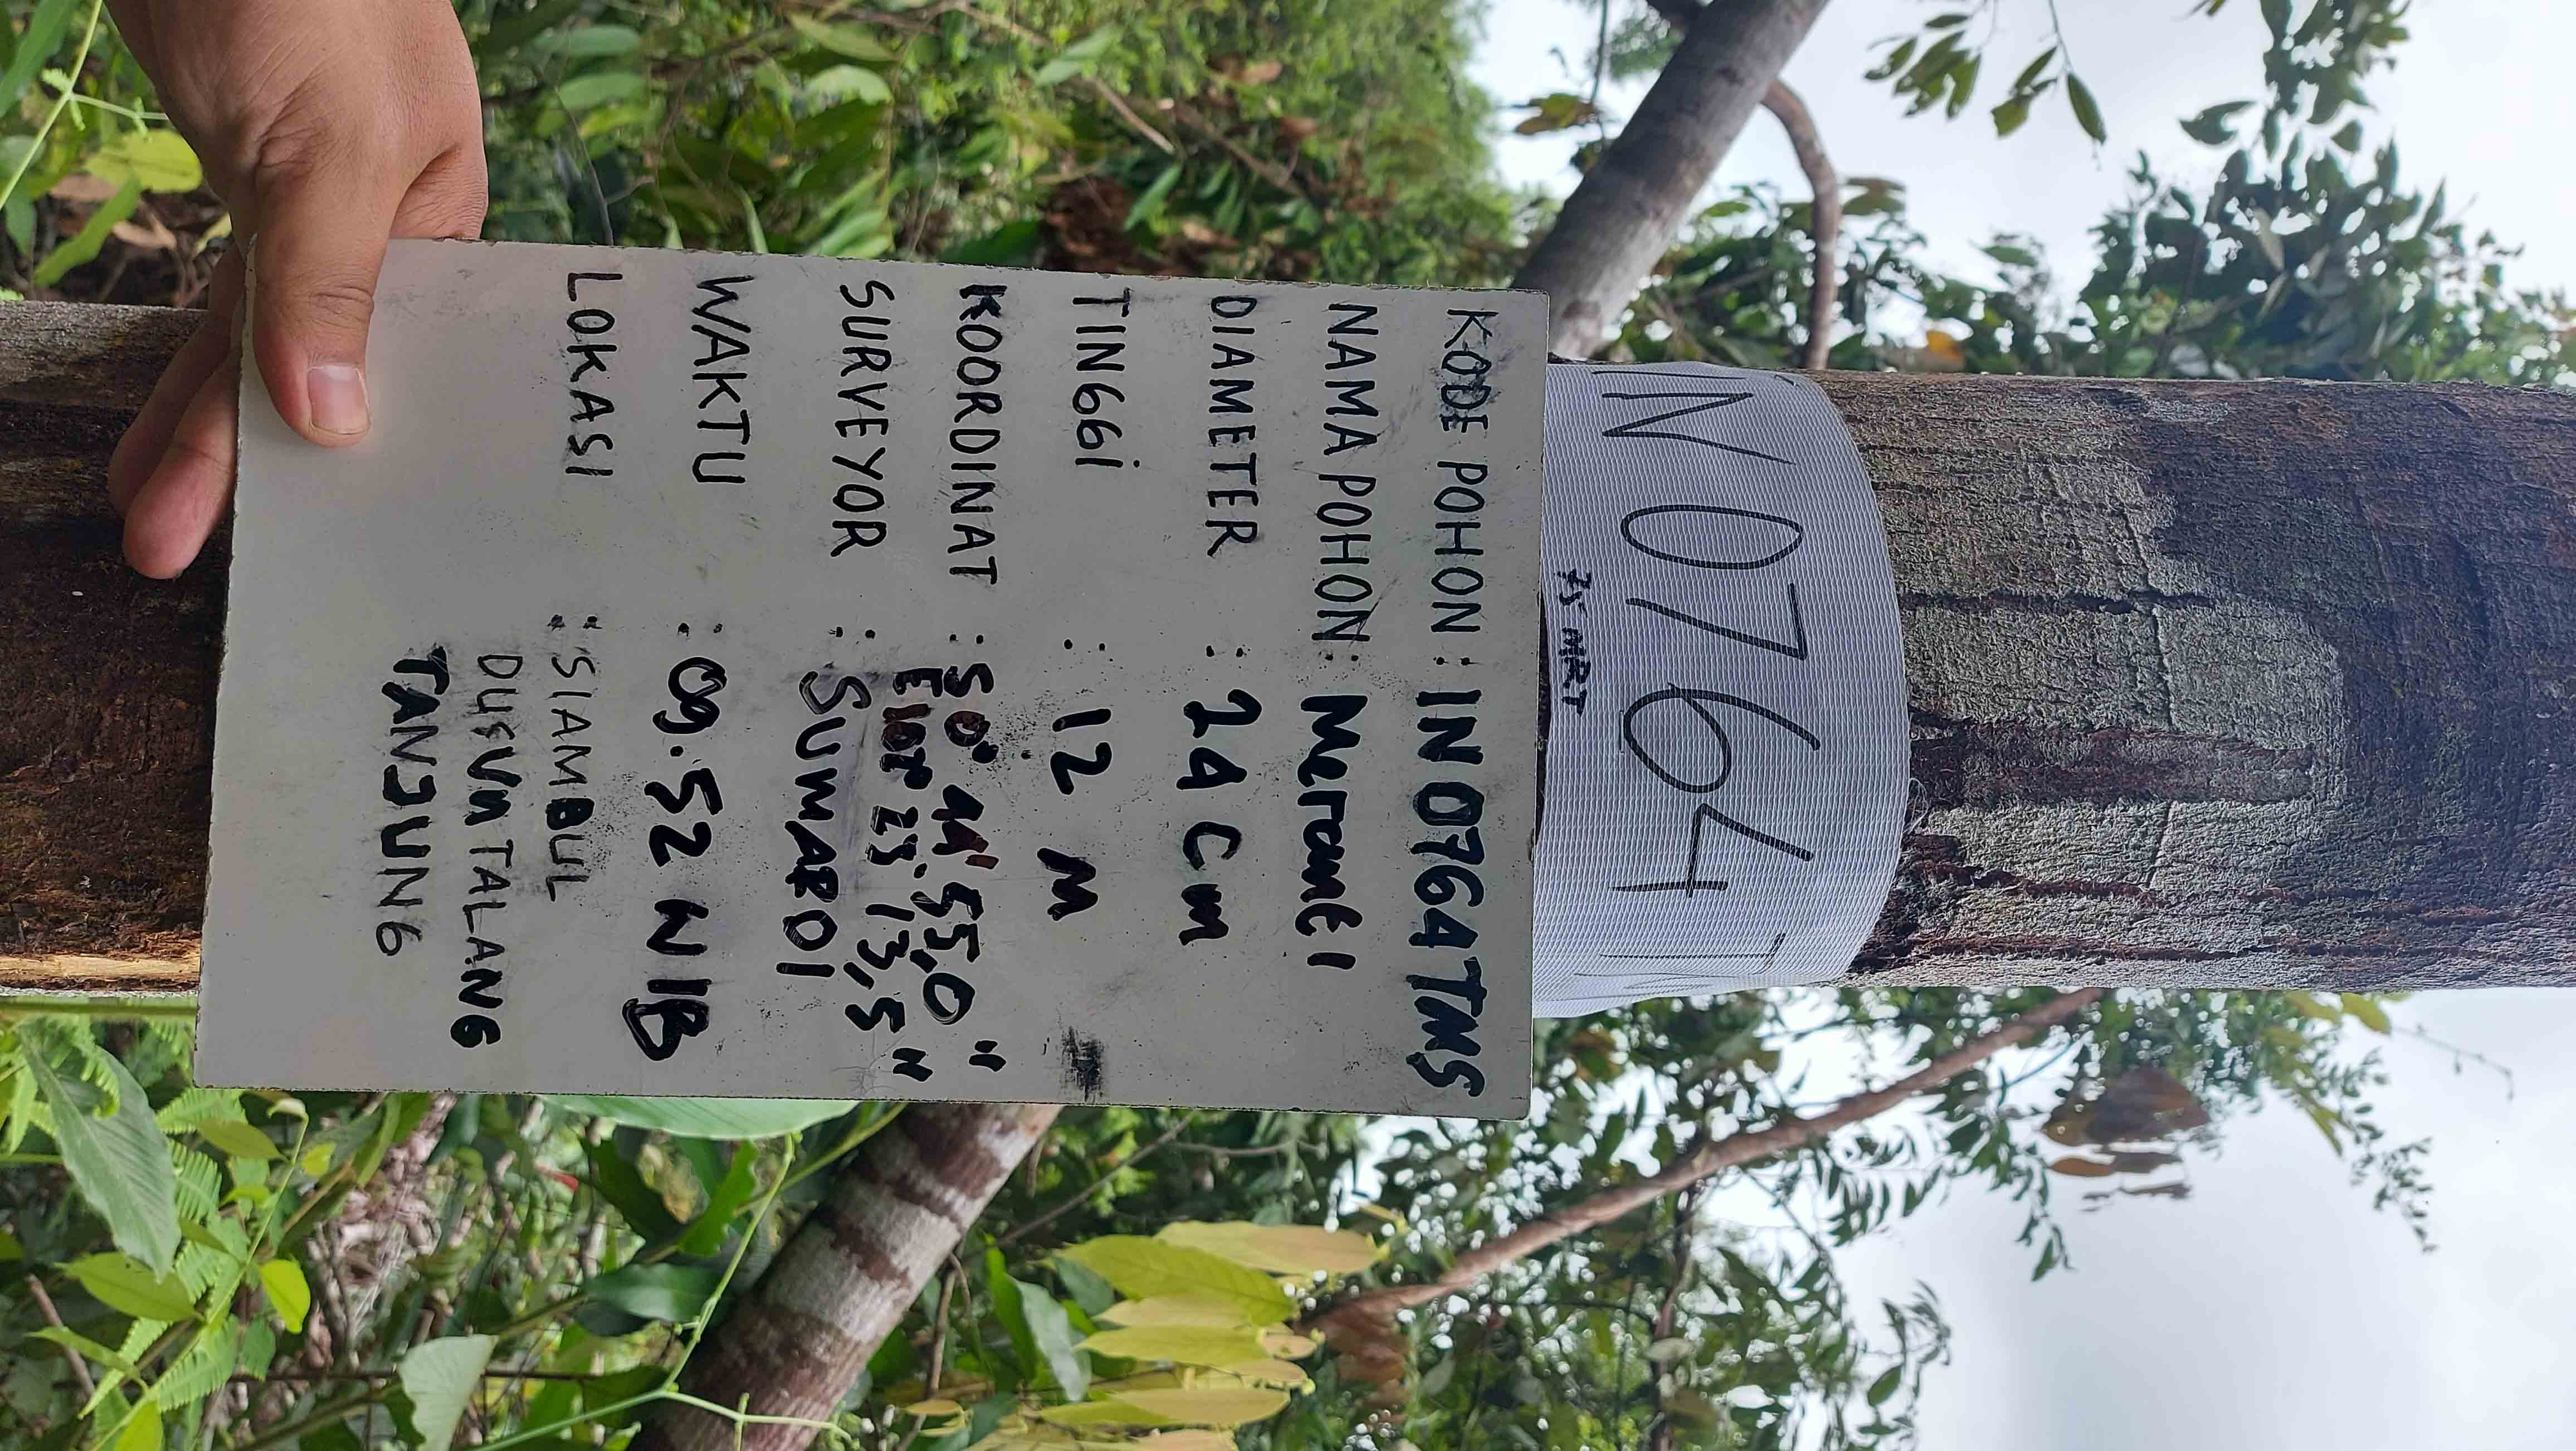 IN 0764 T
75 MRT
KODE POHON : IN 0764 TMS
NAMA POHON : MerantI
DIAMETER : 24 Cm
TINGGi : 12 M
KOORDINAT : S 0° 44' 55,0"
E 102° 23' 13,5"
SURVEYOR : SUMARDI
WAKTU : 09.52 WIB
LOKASI : SIAMBUL
DUSUn TALANG
TANJUNG